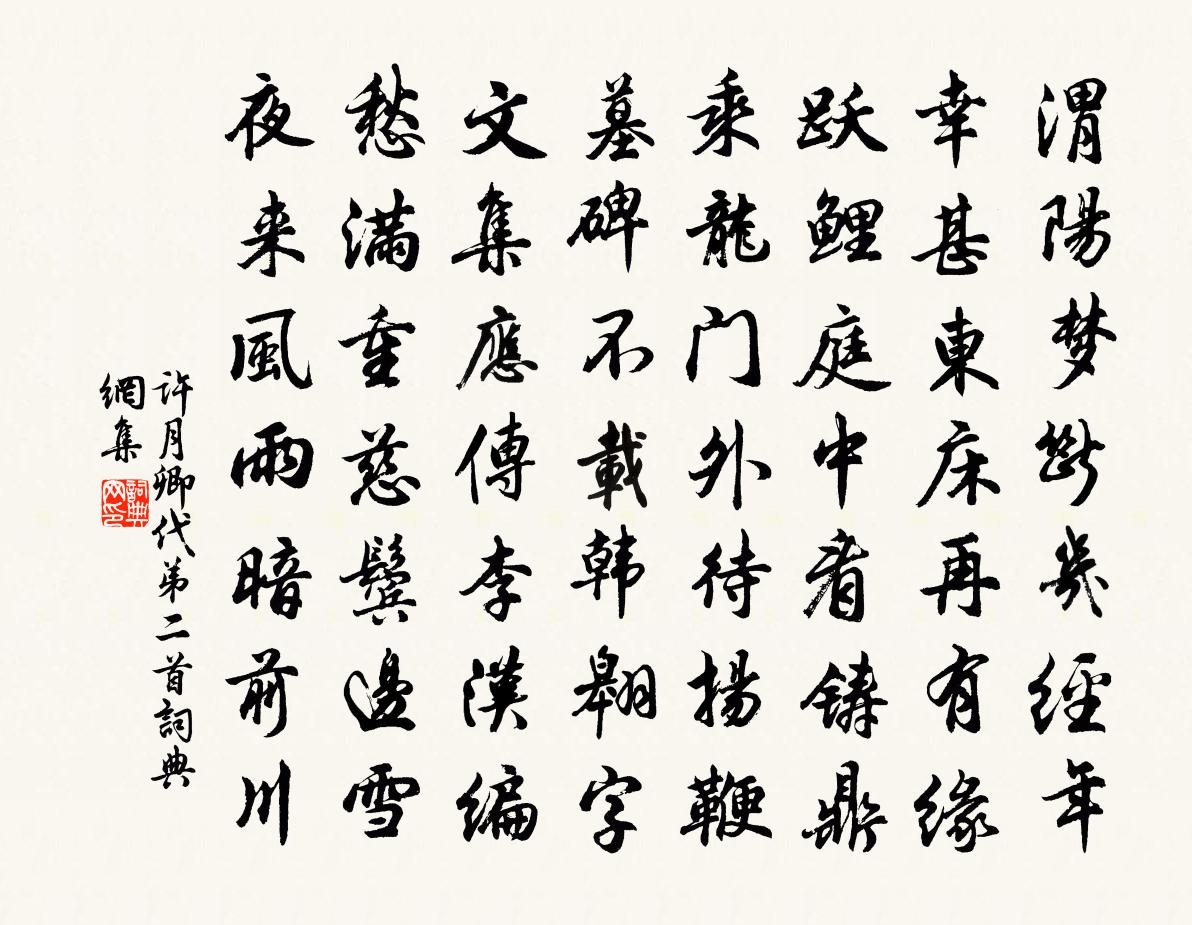 渭陽梦断幾經年
幸甚東床再有緣
跃鯉庭中看鑄鼎
乘龍门外待揚鞭
墓碑不載韩翱字
文集應傳李漢编
愁满重慈鬓邊雪
夜来風雨暗前川
許月卿代第二首詞典
網集
詞典
网印